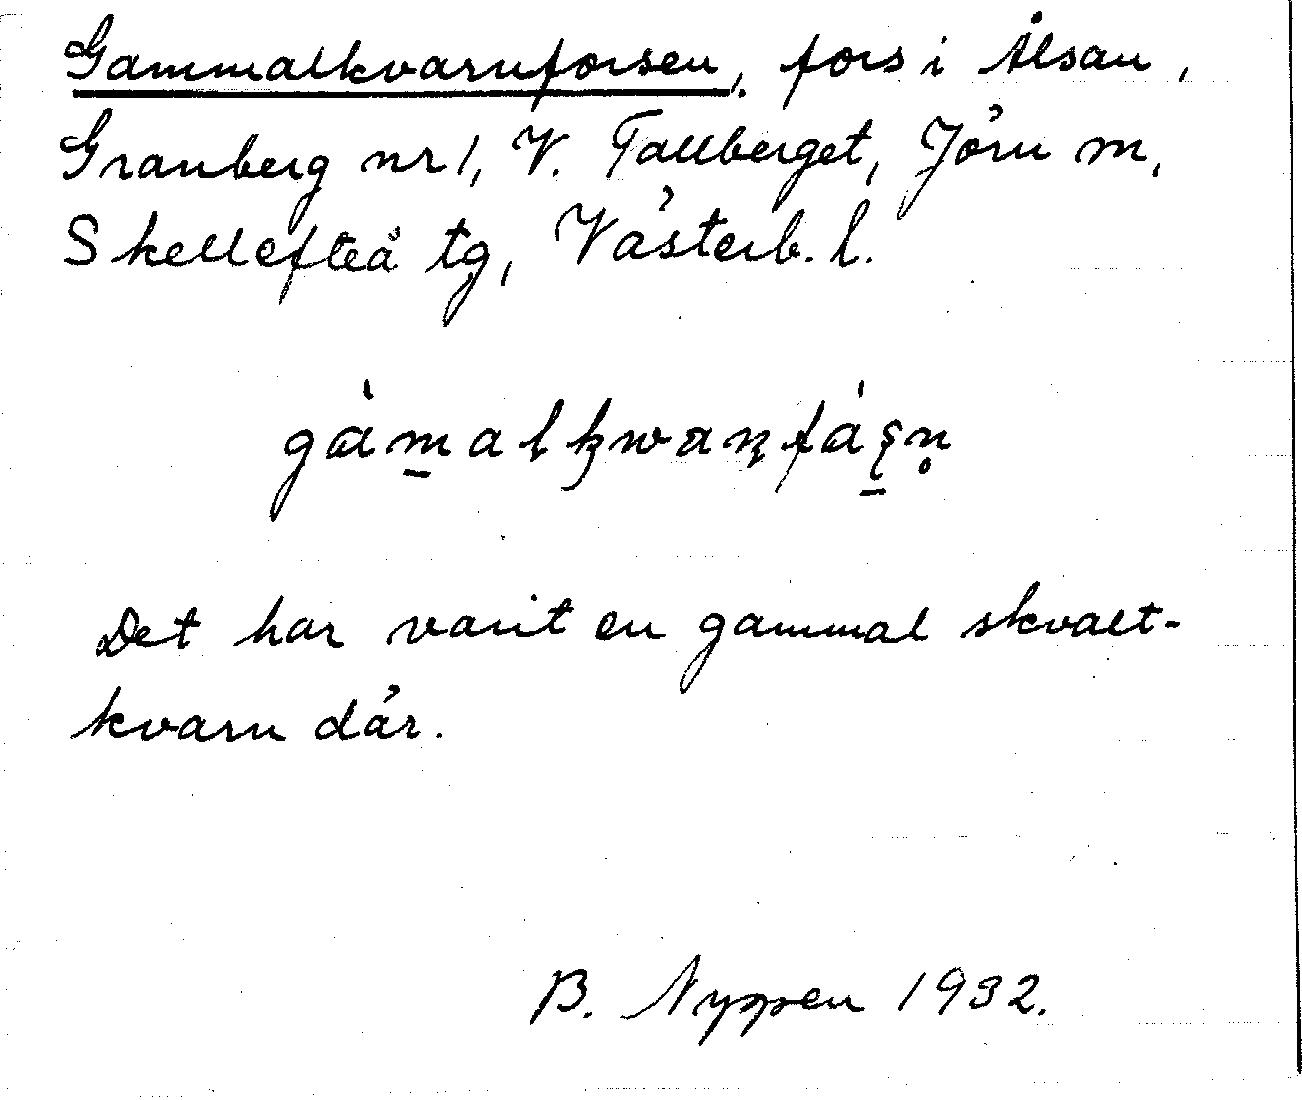 Gammalkvarnforsen, fors i Ålsån,
Granberg nr 1, V. Tallberget, Jörn sn,
Skellefteå tg, Västerb. l.
gàmalkwaɳfásn̥
Det har varit en gammal skvalt-
kvarn där.
B. Nyppen 1932.